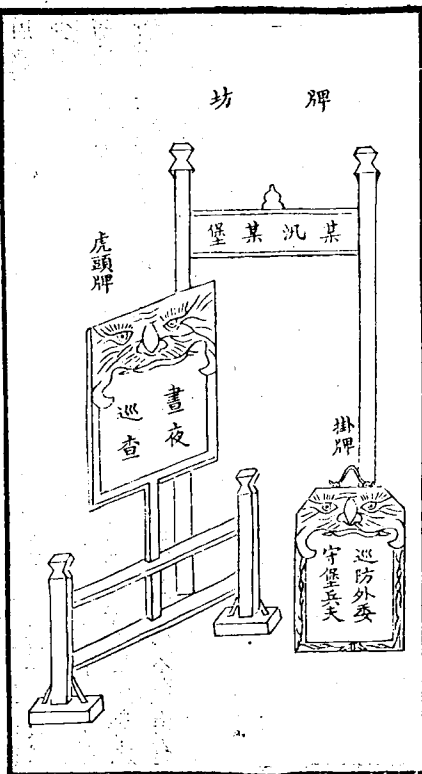 牌坊
某汛某堡
虎頭牌
晝夜
巡查
掛牌
巡防外委
守堡兵夫